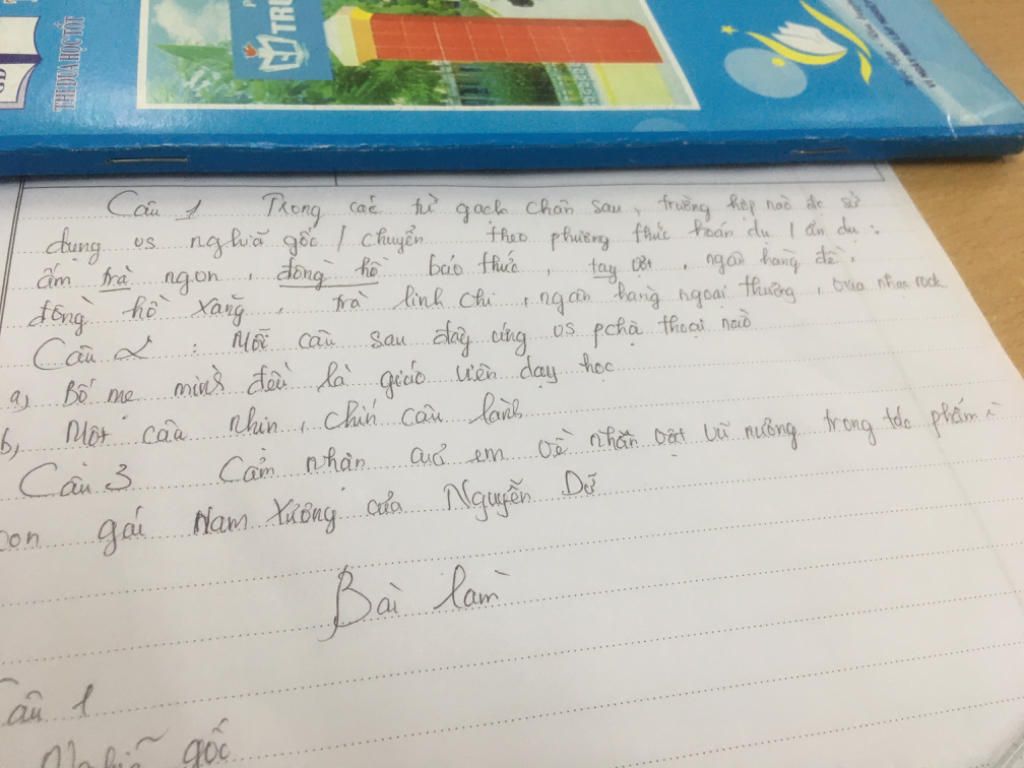 THI ĐUA HỌC TỐT
TRU
Câu 1 Trong các từ gạch chân sau, trường hợp nào đc sử
dụng vs nghĩa gốc / chuyển theo phương thức hoán dụ / ẩn dụ:
ấm trà ngon, đồng hồ báo thức, tay ướt, ngân hàng đề,
đồng hồ xăng, trà linh chi, ngân hàng ngoại thương, vua nhạc rock
Câu 2 : Mỗi câu sau đây ứng vs pchậ thoại naò
a, Bố mẹ mình đều là giáo viên dạy học
b, Một câu nhịn, chín câu lành
Câu 3 Cảm nhận của em về nhân vật Vũ nương trong tác phẩm
con gái Nam Xương của Nguyễn Dữ
Bài làm
Câu 1
Nghĩa gốc